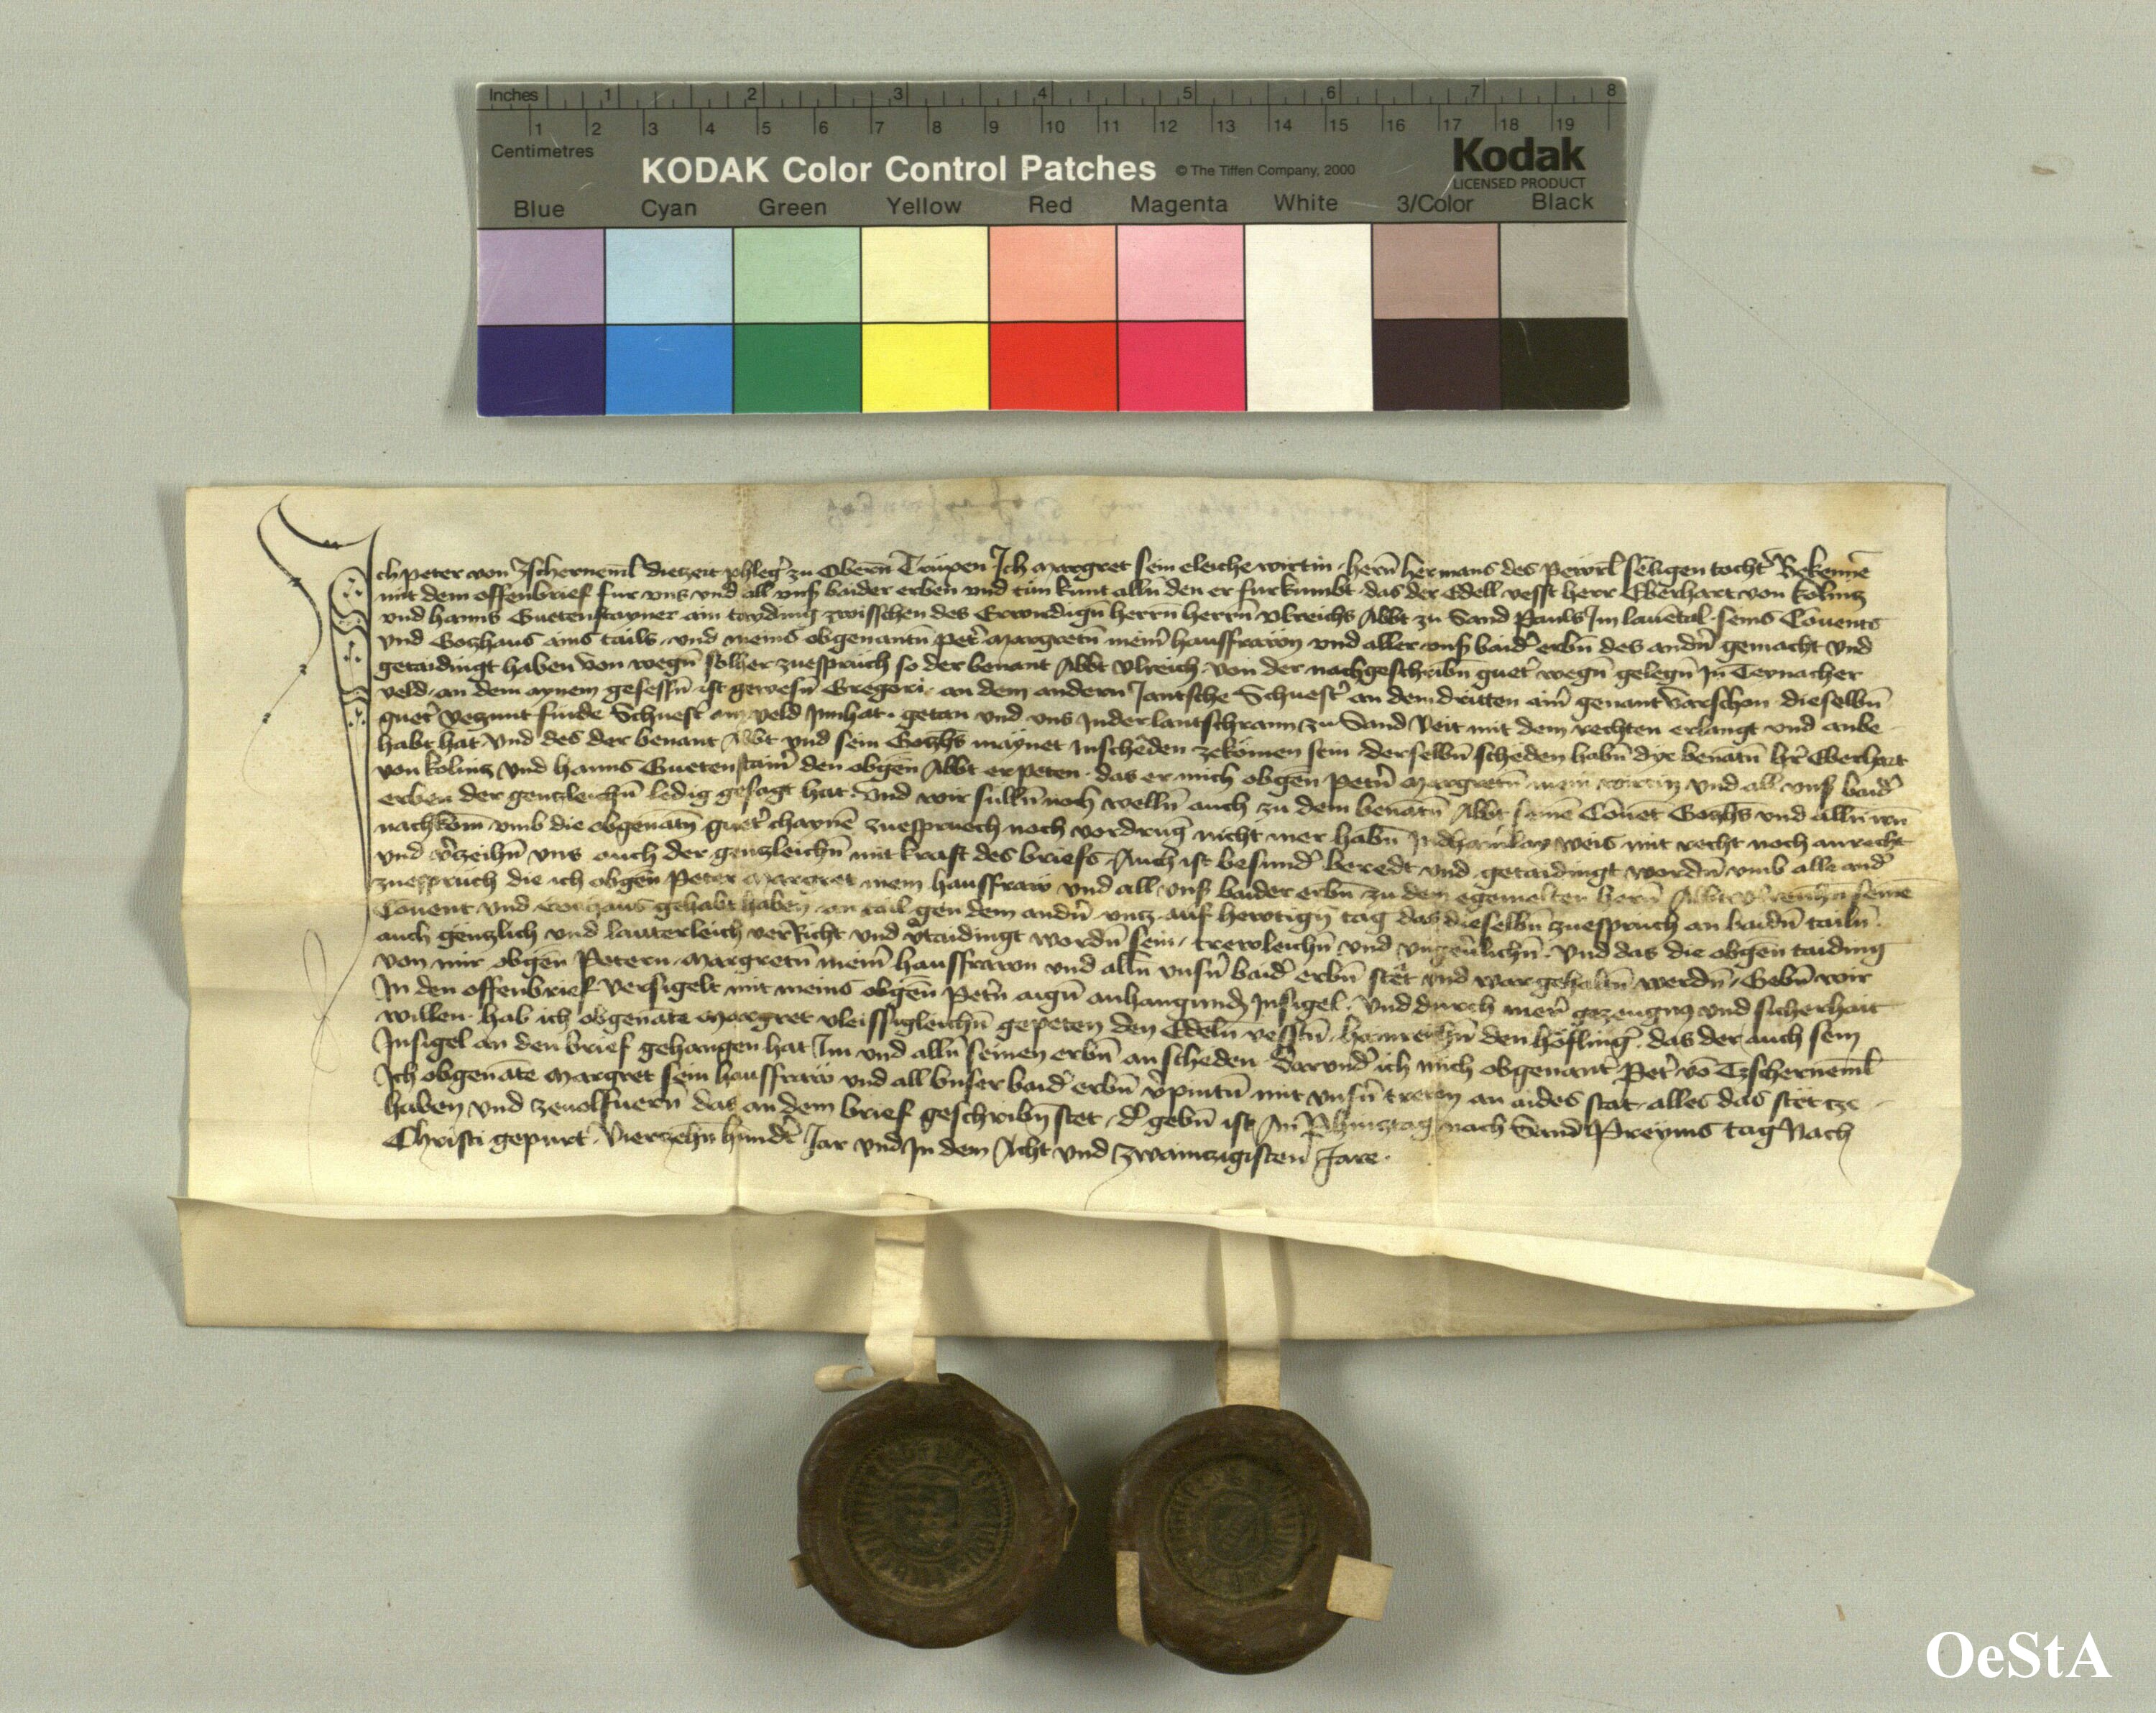 Inches 1 2 3 4 5 6 7 8
1 2 3 4 5 6 7 8 9 10 11 12 13 14 15 16 17 18 19
Centimetres
KODAK Color Control Patches © The Tiffen Company, 2000 Kodak
LICENSED PRODUCT
Blue Cyan Green Yellow Red Magenta White 3/Color Black
Ich peter von Tscherneml diezeit phleger zu Obern Trüxen Ich Margret sein eleiche wirtin hern hermans des seligen tochter Bekennē
mit dem offenbrief fur vns vnd all vnser baider erben vnd tün kunt alln den er furkumbt das der Edell vesst herr Eberhart von kolnitz
vnd hanns Guetenstayner ain tayding zwisschen des Erwirdign herrn herrn vlreichs Abbt zu Sand Pauls Im lauētal seins Cōuents
vnd Gotzhaus ains tails vnd meins obgenantn peter Margretn meinr hausfrawn vnd aller vnser baidr erbn des andern gemacht vnd
getaidingt haben von wegn solher zuespruch so der benant Abbt vlreich von der nachgeschribn guetr wegn gelegn In Teynacher
veld an dem aynem gesessn ist gewesn Gregori an dem andern Jantsche Schuestr an dem dritten ainr genant dieselbn
guetr yezunt Schuestr am veld Innhat getan vnd vns Inder lantschrann zu Sand Veit mit dem rechten erlangt vnd anbe
habt hat vnd des der benant Abbt vnd sein Gotzhs maynet Inscheden zekömen sein derselbn scheden habn dye benātn her Eberhart
von kolnitz vnd hanns Guetenstainr den obgen Abbt erpeten das er mich obgen petern Margretn mein wirtin vnd all vnser baidr
erben der gentzleichn ledig gesagt hat vnd wir sülln noch welln auch zu dem benātn Abbt seinē Cōuēt Gotzhs vnd alln irn
nachkom vmb die obgenātn guetr chaynē zuespruech noch vordrung nicht mer habn weis mit recht noch anrecht
vnd verzeihn vns auch der gentzleichn mit kraft des briefs Auch ist besundr beredt vnd getaidingt wordn vmb alle andr
zuespruch die ich obgen Peter Margret mein hausfraw vnd all vnser baider erbn zu dem egemelten hern Abbt seinē
Cōuent vnd Gotzhaus gehabt haben an tail gen dem andern vntz auf hewtign tag das dieselbn zuespruch an baidn tailn
auch gentzlich vnd lauterleich verRicht vnd vertaidingt wordn sein trewleichn vnd vngeuerlichn Vnd das die obgen taiding
von mir obgen Petern Margretn meinr hausfrawn vnd alln vnsern baidr erbn stet vnd war gehaltn werdn Gebn wir
In den offenbrief versigelt mit meins obgen Petern aign anhangundn Insigel Vnd durch merer gezeugnz vnd sicherhait
willen hab ich obgenāte Margret vleissigleichn gepeten den Edeln vesstn hainreichn den höflingr das der auch sein
Insigel an den brief gehangen hat Im vnd alln seinen erbn an scheden darundr ich mich obgenantr Petr vō Tzschernēml
Ich obgenāte Margret sein hausfraw vnd all vnser baidr erbn verpintn mit vnsern trewn an aides stat alles das stet tze
haben vnd zeuolfuern das an dem brief geschribn stet dr gebn ist Am Phintztag nach Sand Preyms tag Nach
Christi gepurt Vierzehn hundrt Jar vnd In dem Acht vnd Zwaintzigisten Jare
OeStA